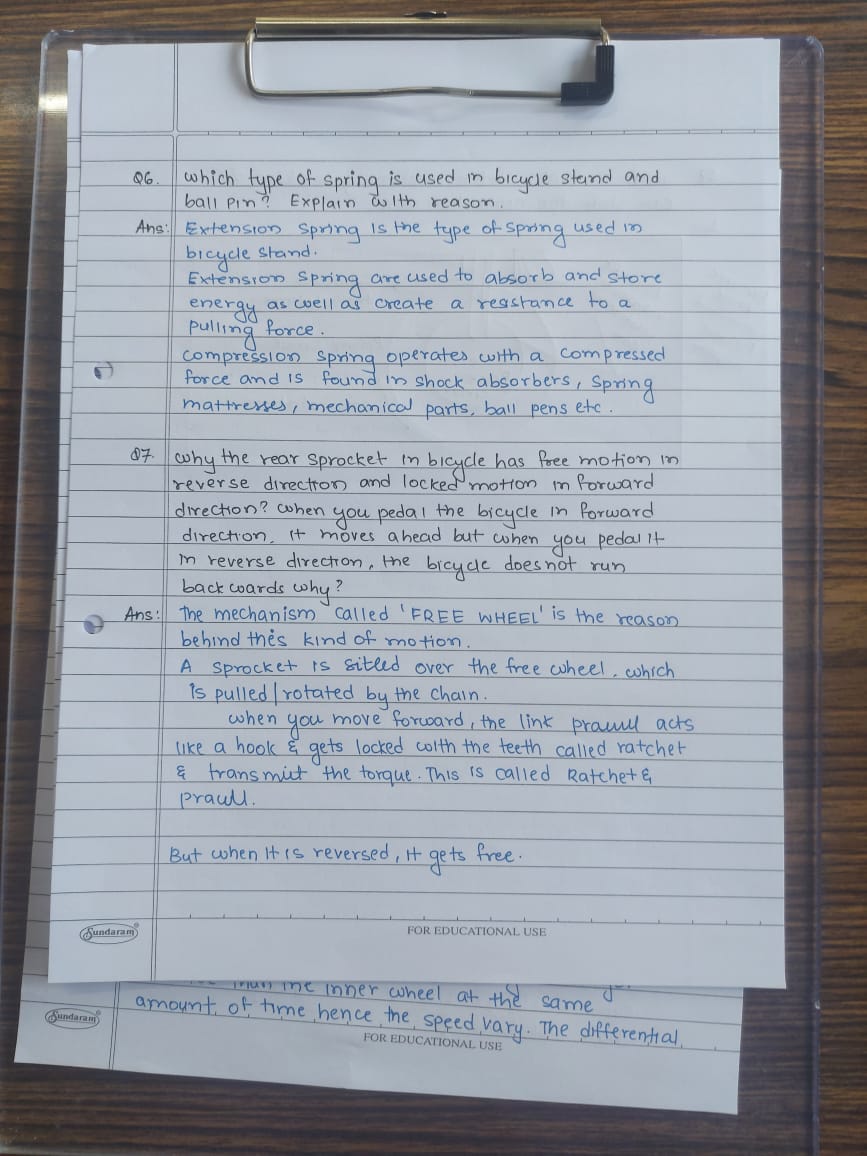 Q6. which type of spring is used in bicycle stand and
ball pin? Explain with reason.
Ans: Extension spring is the type of spring used in
bicycle stand.
Extension spring are used to absorb and store
energy as well as create a resstance to a
pulling force.
compression spring operates with a compressed
force and is found in shock absorbers, spring
mattresses, mechanical parts, ball pens etc.
Q7. Why the rear sprocket in bicycle has free motion in
reverse direction and locked motion in forward
direction? when you pedal the bicycle in forward
direction, it moves ahead but when you pedal it
in reverse direction, the bicycle does not run
backwards why?
Ans: The mechanism called 'FREE WHEEL' is the reason
behind this kind of motion.
A sprocket is sitted over the free wheel, which
is pulled/rotated by the chain.
when you move forward, the link prawll acts
like a hook & gets locked with the teeth called ratchet
& transmit the torque. This is called Ratchet &
prawll.
But when it is reversed, it gets free.
Sundaram
FOR EDUCATIONAL USE
than the inner wheel at the same
amount of time hence the speed vary. The differential
Sundaram
FOR EDUCATIONAL USE